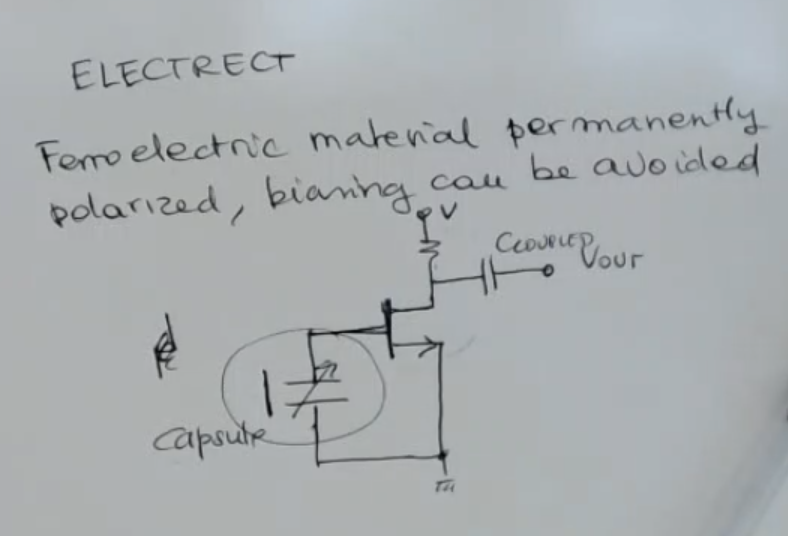 ELECTRECT
Ferroelectric material permanently
polarized, biasing can be avoided
V
CCOUPLED
VOUT
Capsule